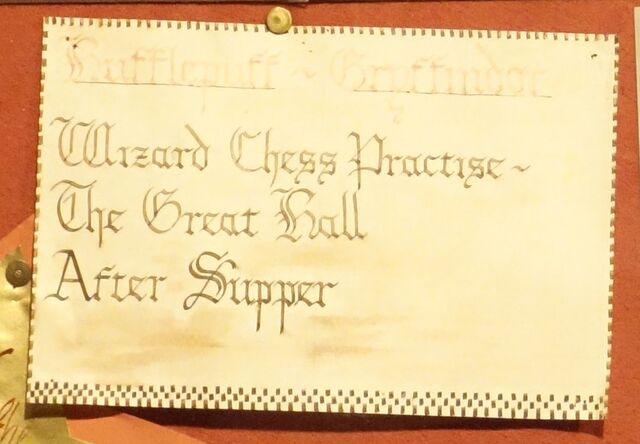 Hufflepuff ~ Gryffindor
Wizard Chess Practise ~
The Great Hall
After Supper